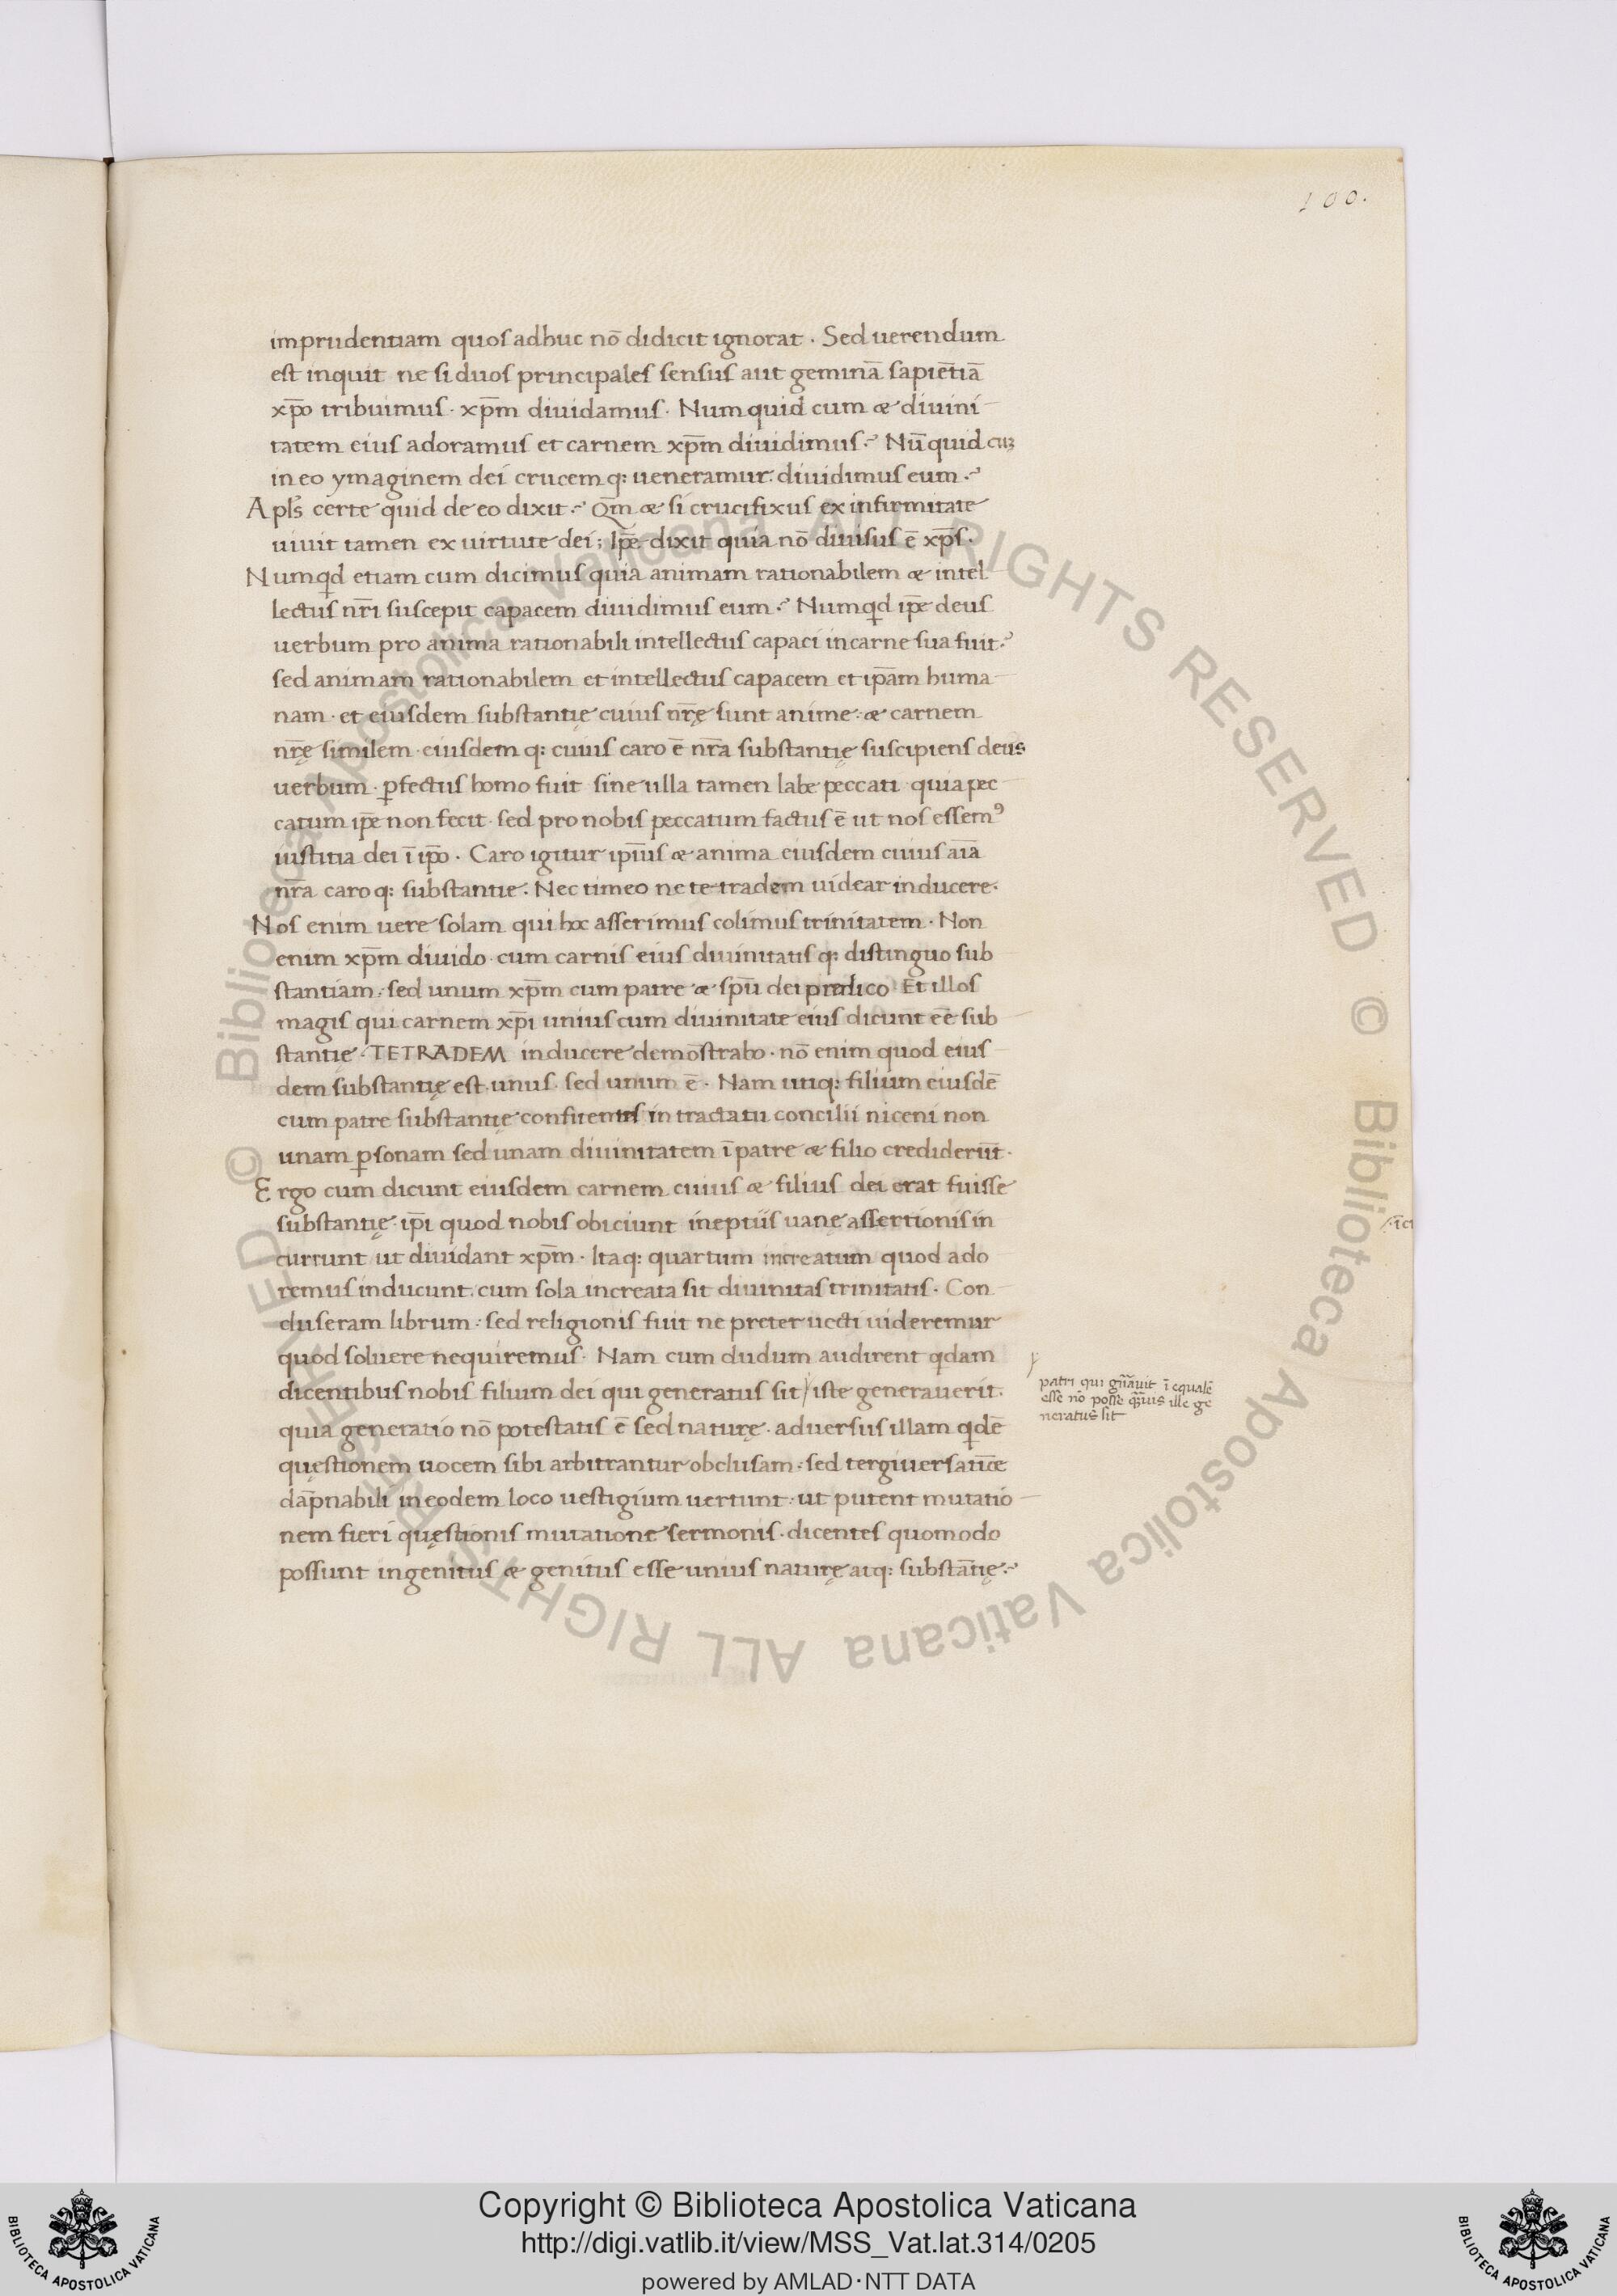 100.
imprudentiam quos adhuc nō didicit ignorat . Sed uerendum
est inquit ne si duos principales sensus aut geminā sapiētiā
xp̄o tribuimus . xp̄m diuidamus . Numquid cum & diuini
tatem eius adoramus et carnem xp̄m diuidimus ? Nū quid cuʒ
in eo ymaginem dei crucemq: ueneramur : diuidimus eum ?
Apl̄s certe quid de eo dixit ? Qm̄ & si crucifixus ex infirmitate
uiuit tamen ex uirtute dei ; Ip̄e dixit quia nō diuisus ē xp̄s .
Numqd etiam cum dicimus quia animam rationabilem & intel
lectus nr̄i suscepit capacem diuidimus eum ? Numqd ip̄e deus
uerbum pro anima rationabili intellectus capaci in carne sua fuit ?
sed animam rationabilem et intellectus capacem et ip̄am huma
nam . et eiusdem substantię cuius nr̄ę sunt anime : & carnem
nr̄ę similem . eiusdem q: cuius caro ē nr̄a substantię suscipiens deus
uerbum . ꝑfectus homo fuit sine ulla tamen labe peccati . quia pec
catum ip̄e non fecit . sed pro nobis peccatum factus ē ut nos essemꝰ
iustitia dei ī ip̄o . Caro igitur ip̄ius & anima eiusdem cuius aīa
nr̄a caro q: substantie . Nec timeo ne tetradem uidear inducere .
Nos enim uere solam qui hoc asserimus colimus trinitatem . Non
enim xp̄m diuido . cum carnis eius diuinitatis q: distinguo sub
stantiam : sed unum xp̄m cum patre & sp̄u dei predico Et illos
magis qui carnem xp̄i unius cum diuinitate eius dicunt eē sub
stantię . TETRADEM inducere demōstrabo . nō enim quod eius
dem substantię est . unus . sed unum ē . Nam utiq: filium eiusdē
cum patre substantię confitentes in tractatu concilii niceni non
unam ꝑsonam sed unam diuinitatem ī patre & filio crediderūt .
Ergo cum dicunt eiusdem carnem cuius & filius dei erat fuisse
substantię . ip̄i quod nobis obiciunt ineptiis uanę assertionis in
currunt ut diuidant xp̄m . Itaq: quartum increatum quod ado
remus inducunt . cum sola increata sit diuinitas trinitatis . Con
cluseram librum : sed religionis fuit ne preteruecti uideremur
quod soluere nequiremus . Nam cum dudum audirent qdam
dicentibus nobis filium dei qui generatus sit / iste generauerit .
patri qui gn̄auit ī equalē
esse nō posse q̄uis ille ge
neratus sit
quia generatio nō potestatis ē sed naturę . aduersus illam qdē
quęstionem uocem sibi arbitrantur obclusam : sed tergiuersatiōe
dāpnabili in eodem loco uestigium uertunt : ut putent mutatio
nem fieri quęstionis mutatione sermonis . dicentes quomodo
possunt ingenitus & genitus esse unius naturę atq: substātię ?
© Biblioteca Apostolica Vaticana ALL RIGHTS RESERVED © Biblioteca Apostolica Vaticana ALL RIGHTS RESERVED
Copyright © Biblioteca Apostolica Vaticana
http://digi.vatlib.it/view/MSS_Vat.lat.314/0205
powered by AMLAD·NTT DATA
BIBLIOTECA APOSTOLICA VATICANA
BIBLIOTECA APOSTOLICA VATICANA